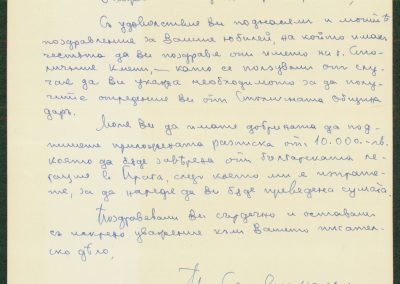 Съ удоволствие Ви поднасямъ и моитѣ
поздравления за Вашия юбилей, на който имахъ
честьта да Ви поздравя отъ името на г. Сто-
личния Кметъ, — като се ползувамъ отъ слу-
чая да Ви укажа необходимото за да полу-
чите определения Ви отъ Столичната Община
даръ.
Моля Ви да имате добрината да под-
пишете приложената разписка отъ 10.000.-лв.
която да бѫде заверена отъ българската ле-
гация въ Прага, следъ което ми я изпрате-
те, за да наредя да Ви бѫде преведена сумата.
Поздравявамъ Ви сърдечно и оставамъ
съ искрено уважение къмъ Вашето писател-
ско дѣло,